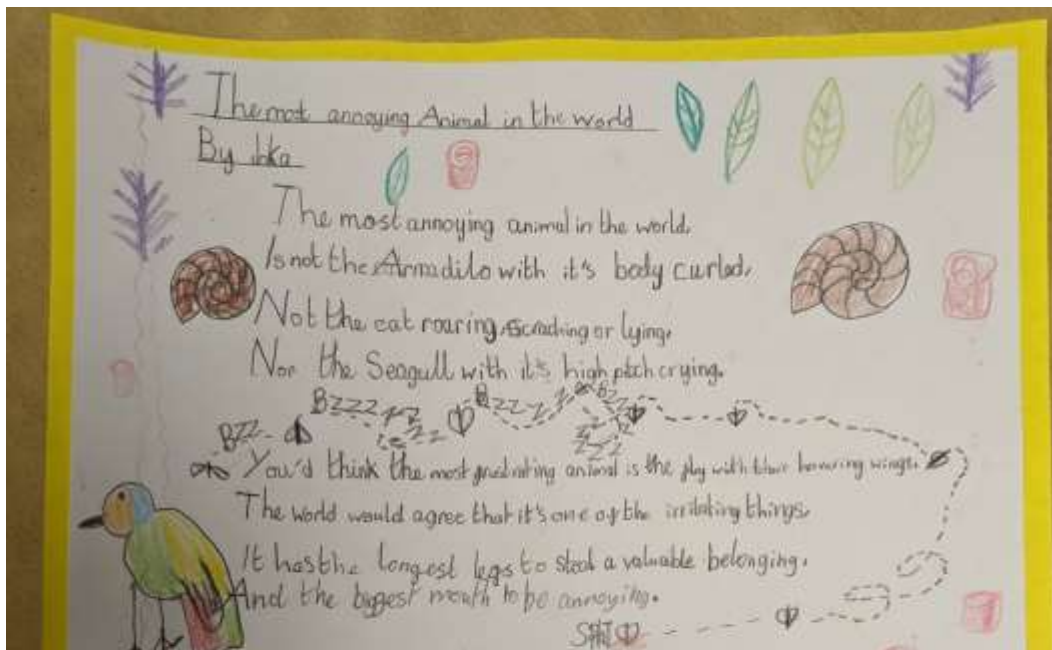 The most annoying Animal in the world
By
The most annoying animal in the world,
Is not the Armadilo with it's body curled,
Not the cat roaring, Scraching or lying,
Nor the Seagull with it's high pitch crying.
Bzzzzzz Bzzzzz Bz
zzzz
BZZ
You'd think the most animal is the fly with their hovering wings.
The world would agree that it's one of the irritating things,
It has the longest legs to steal a valuable belonging.
And the biggest mouth to be annoying.